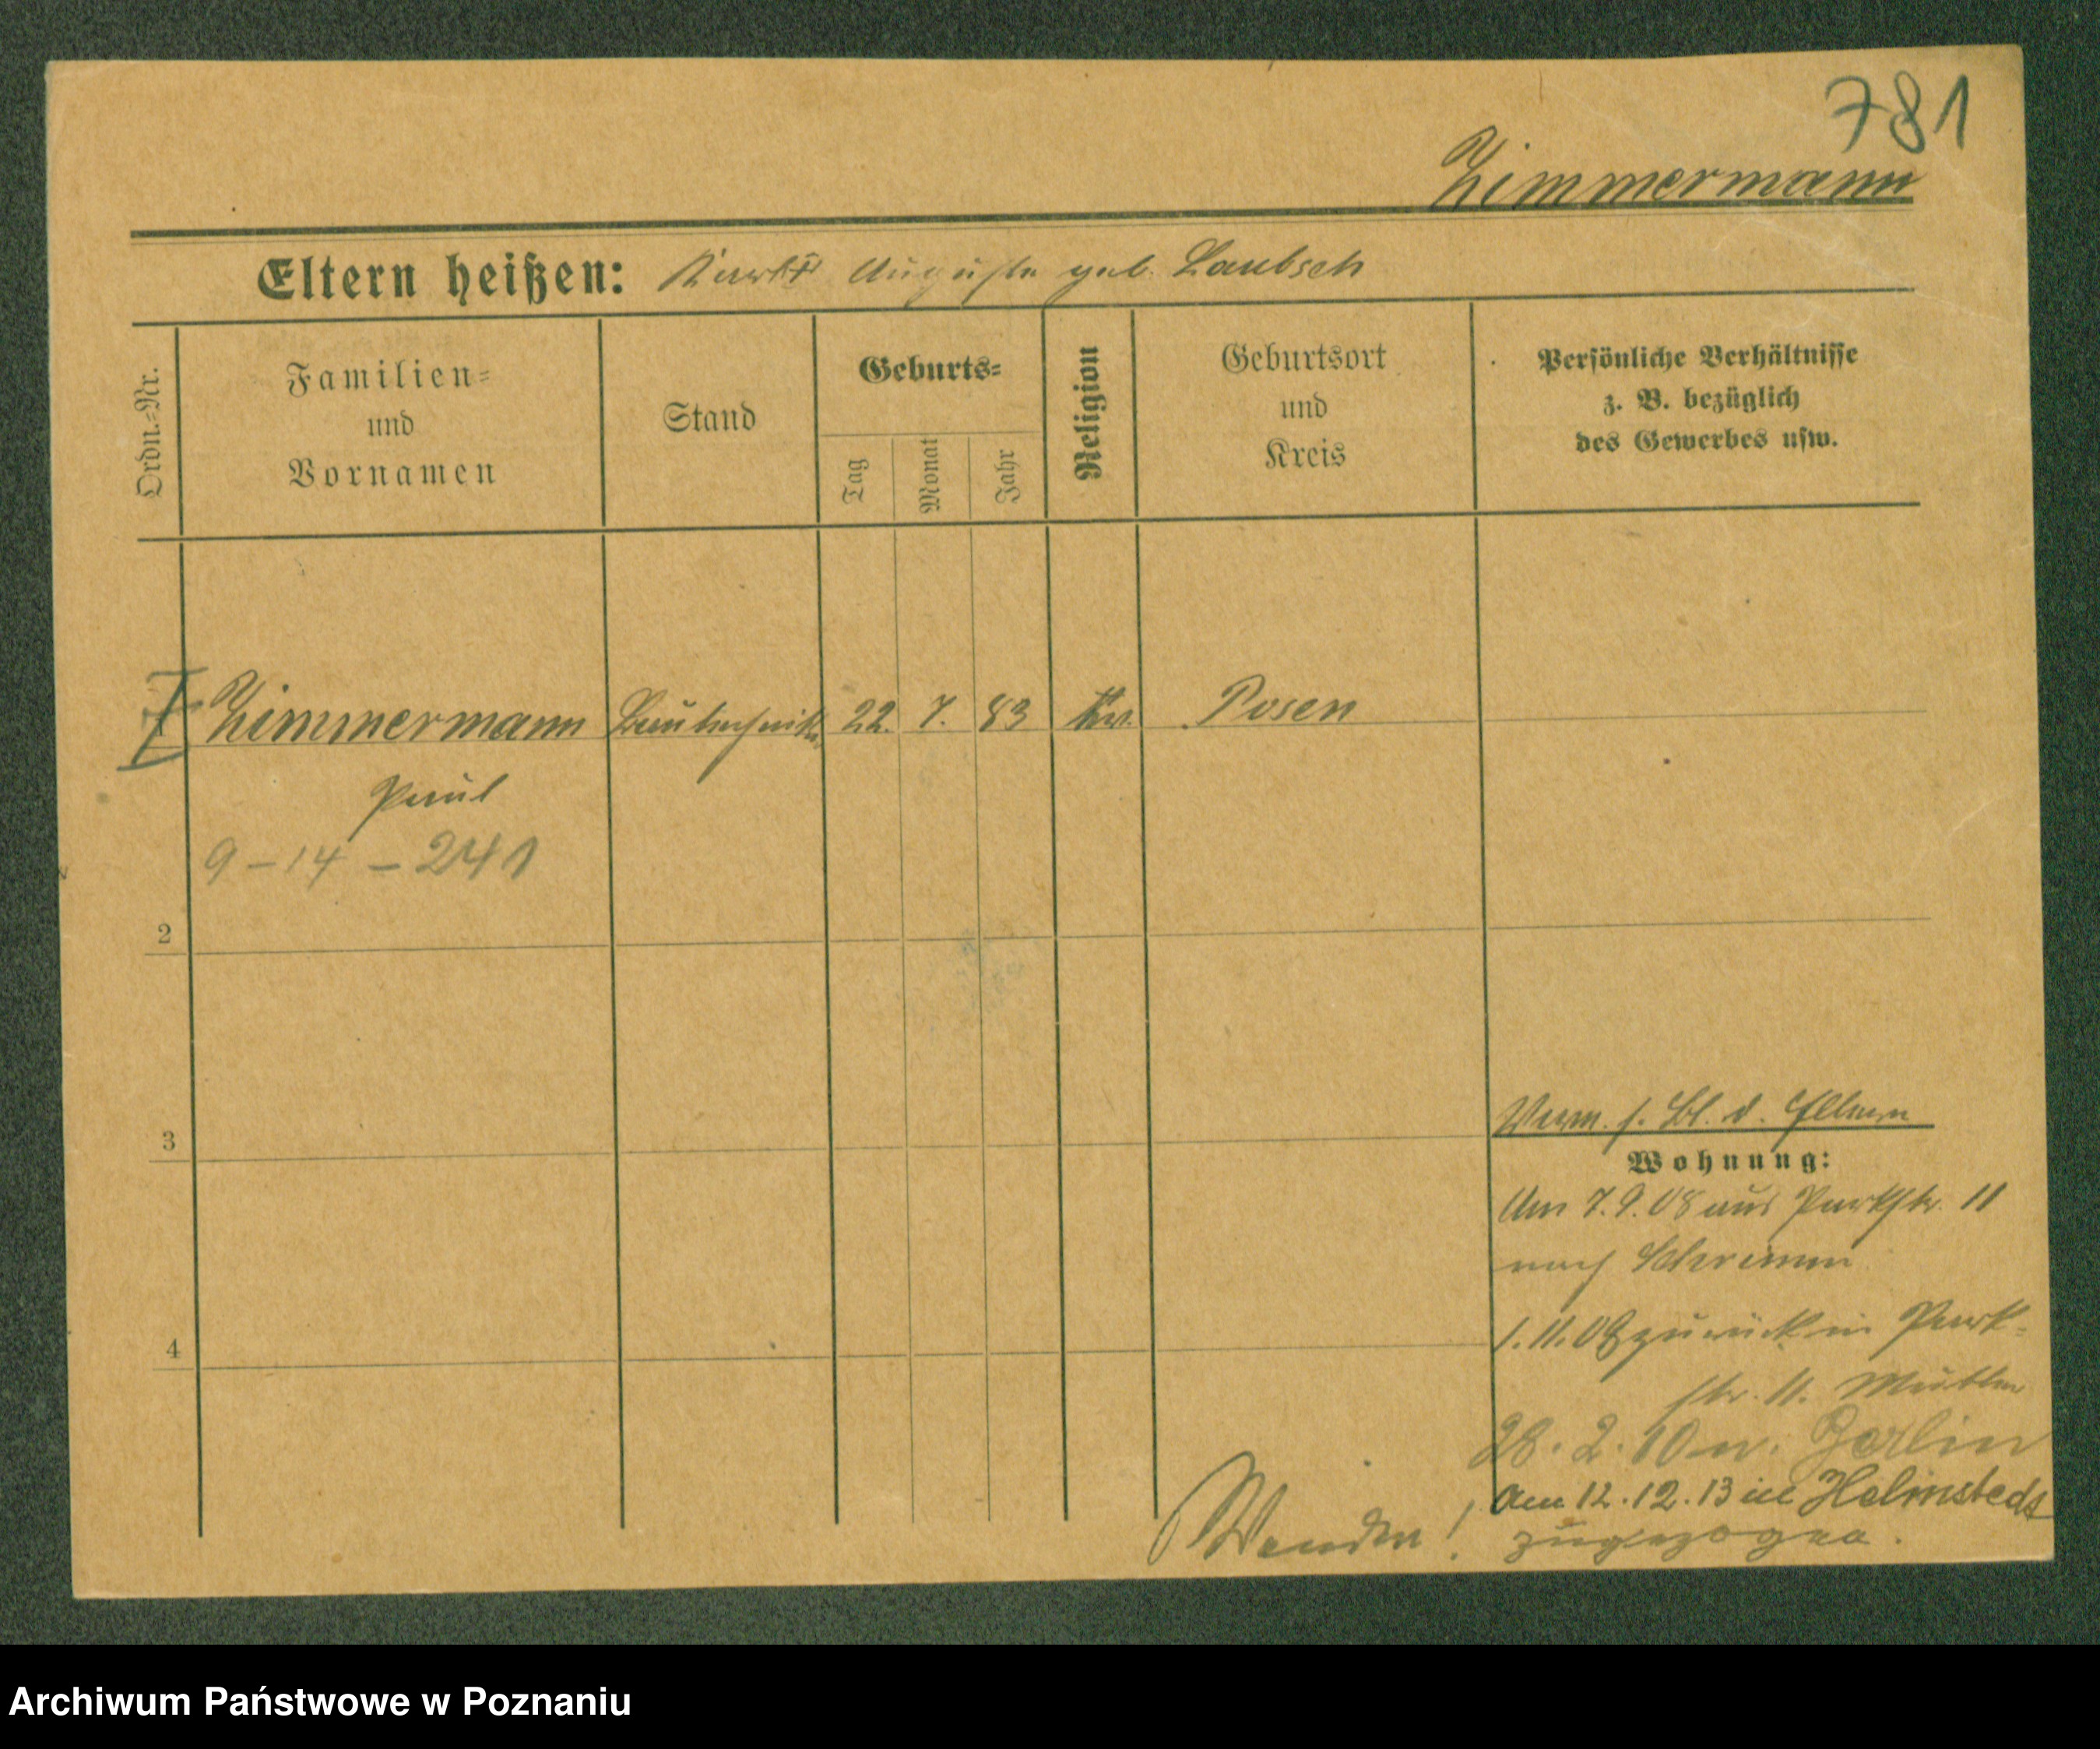 781
Zimmermann
Eltern heißen: Karl † Auguste geb. Laubsch
Ordn.=Nr.
Familien=
und
Vornamen
Stand
Geburts=
Tag
Monat
Jahr
Religion
Geburtsort
und
Kreis
Persönliche Verhältnisse
z. B. bezüglich
des Gewerbes usw.
Zimmermann Bautechniker 22. 7. 83 Posen
Paul
9-14-241
2
3
4
Verm. s. Bl. d. Eltern
Wohnung:
Am 7.9.08 aus Parkstr. 11
nach Schrimm
1.11.08 zurück in Park-
str. 11. Mutter
28.2.10 n. Berlin
Am 12.12.13 in Helmstedt
zugezogen.
Wenden!
Archiwum Państwowe w Poznaniu